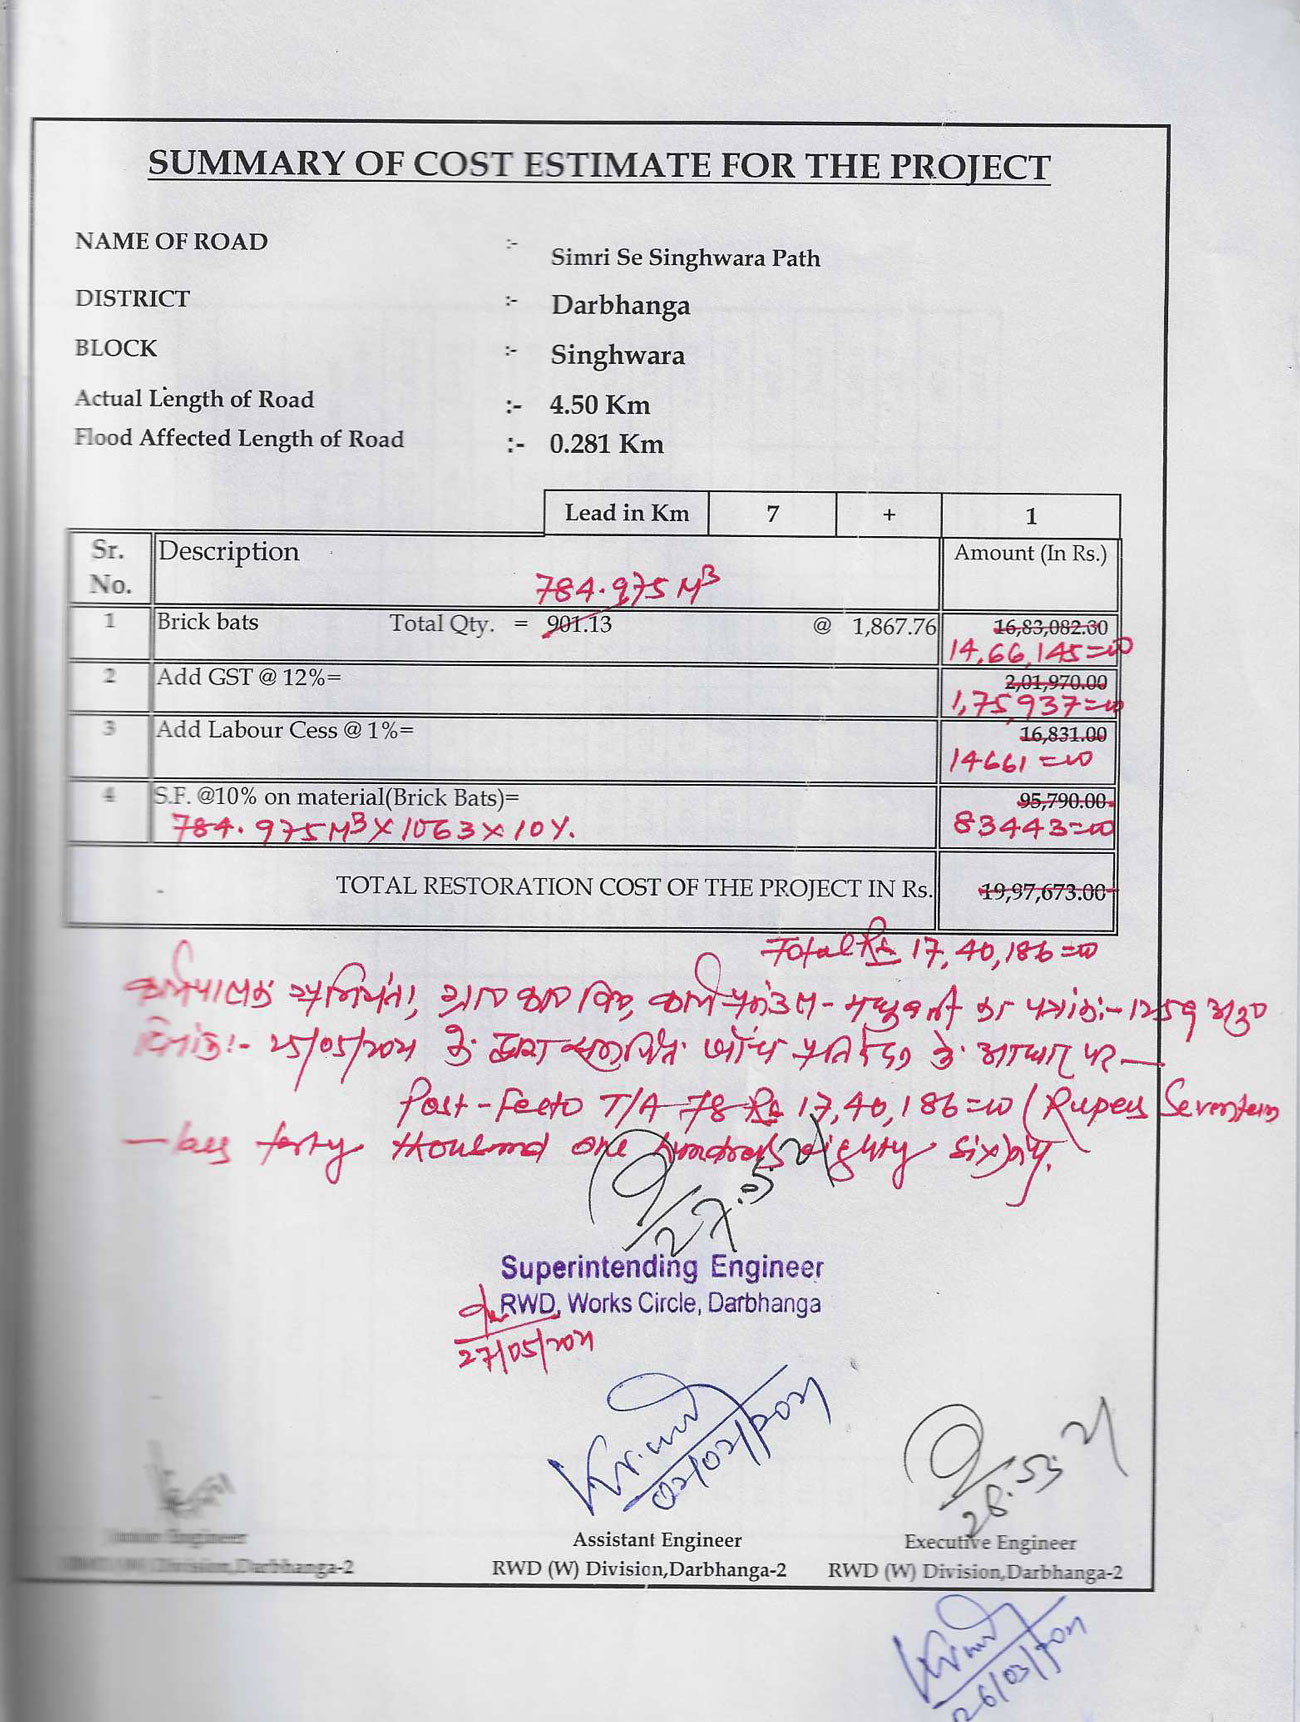 SUMMARY OF COST ESTIMATE FOR THE PROJECT
NAME OF ROAD :- Simri Se Singhwara Path
DISTRICT :- Darbhanga
BLOCK :- Singhwara
Actual Length of Road :- 4.50 Km
Flood Affected Length of Road :- 0.281 Km
Lead in Km 7 + 1
Sr. No. Description Amount (In Rs.)
784.975 M3
1 Brick bats Total Qty. = 901.13 @ 1,867.76 16,83,082.30
14,66,145=00
2 Add GST @ 12%= 2,01,970.00
1,75,937=00
3 Add Labour Cess @ 1%= 16,831.00
14661=00
4 S.F. @10% on material(Brick Bats)= 95,790.00
784.975M3X1063X10%. 83443=00
TOTAL RESTORATION COST OF THE PROJECT IN Rs. 19,97,673.00
Total Rs 17,40,186=00
कार्यपालक अभियंता, कार्य पत्रांक:- 1259 अनु0
दिनांक:- 25/05/2021 के द्वारा जाँच प्रतिवेदन के आधार पर—
Post-Fecto T/A Rs 17,40,186=00 (Rupees Seventeen
—lacs forty thousand one hundred eighty six) only.
27.05.21
Superintending Engineer
RWD, Works Circle, Darbhanga
27/05/2021
02/02/2021
28.5.21
Junior Engineer Assistant Engineer Executive Engineer
Division,Darbhanga-2 RWD (W) Division,Darbhanga-2 RWD (W) Division,Darbhanga-2
26/03/2021